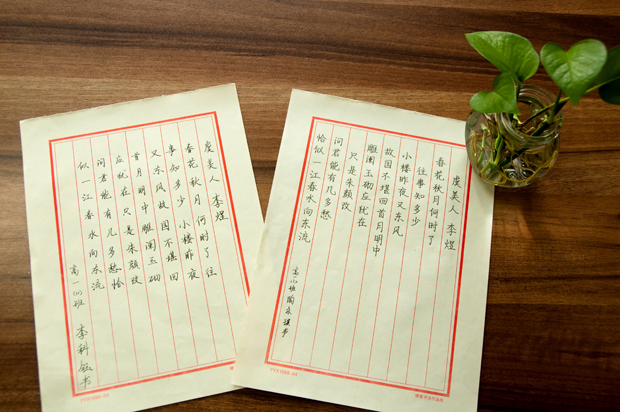 虞美人 李煜
春花秋月何时了往
事知多少 小楼昨夜
又东风故国不堪回
首月明中雕阑玉砌
应犹在只是朱颜改
问君能有几多愁恰
似一江春水向东流
高一班 李科书
虞美人 李煜
春花秋月何时了
往事知多少
小楼昨夜又东风
故国不堪回首月明中
雕阑玉砌应犹在
只是朱颜改
问君能有几多愁
恰似一江春水向东流